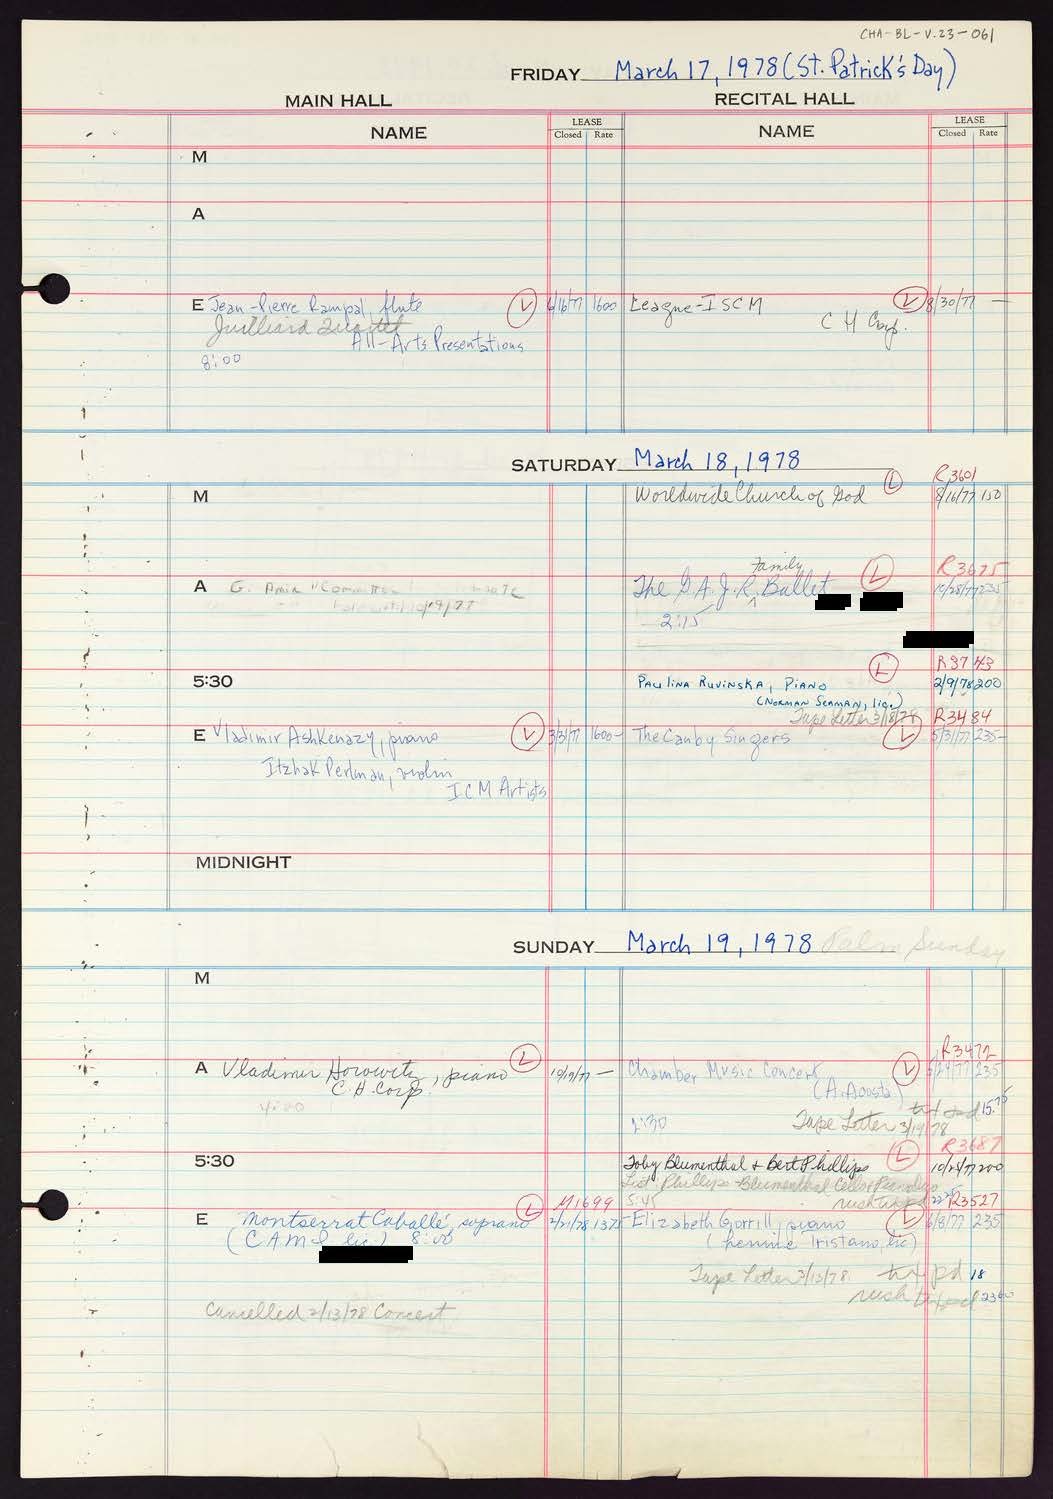 CHA-BL-V.23-061
FRIDAY March 17, 1978 (St. Patrick's Day)
MAIN HALL RECITAL HALL
NAME LEASE Closed Rate NAME LEASE Closed Rate
M
A
E Jean-Pierre Rampal, flute L 1600 League-ISCM L 8/30/77 —
Juilliard Quartet C H Corp.
All-Arts Presentations
8:00
SATURDAY March 18, 1978
L R3601
M Worldwide Church of God 8/16/77 150
Family L R3675
A G. Amin "Committee The G.A.J.R. Ballet 10/28/77 235
10/19/77
2:15
L R3743
5:30 Paulina Ruvinska, Piano 2/9/78 200
(Norman Seaman, lic.)
Tape Letter 3/18/78 R3484
E Vladimir Ashkenazy, piano L 3/3/77 1600- The Canby Singers L 5/31/77 235-
Itzhak Perlman, violin
ICM Artists
MIDNIGHT
SUNDAY March 19, 1978 Palm Sunday
M
L R3472
A Vladimir Horowitz, piano 10/7/77 — Chamber Music Concert L 235
C.H. Corp. (A. Acosta)
4:00 txt pd 15.75
2:30 Tape Letter 3/19/78
L R3687
5:30 Toby Blumenthal + Bert Phillips 10/25/77 200
List Phillips-Blumenthal Cello + Piano Duo
L M1699 5:45 rush txt pd R3527
E Montserrat Caballé, soprano 1375 Elizabeth Gorrill, piano L 6/8/77 235
(CAMI lic.) 8:00 (Lennie Tristano, lic)
Tape Letter 3/13/78 txt pd 18
rush txt pd
Cancelled 2/13/78 Concert